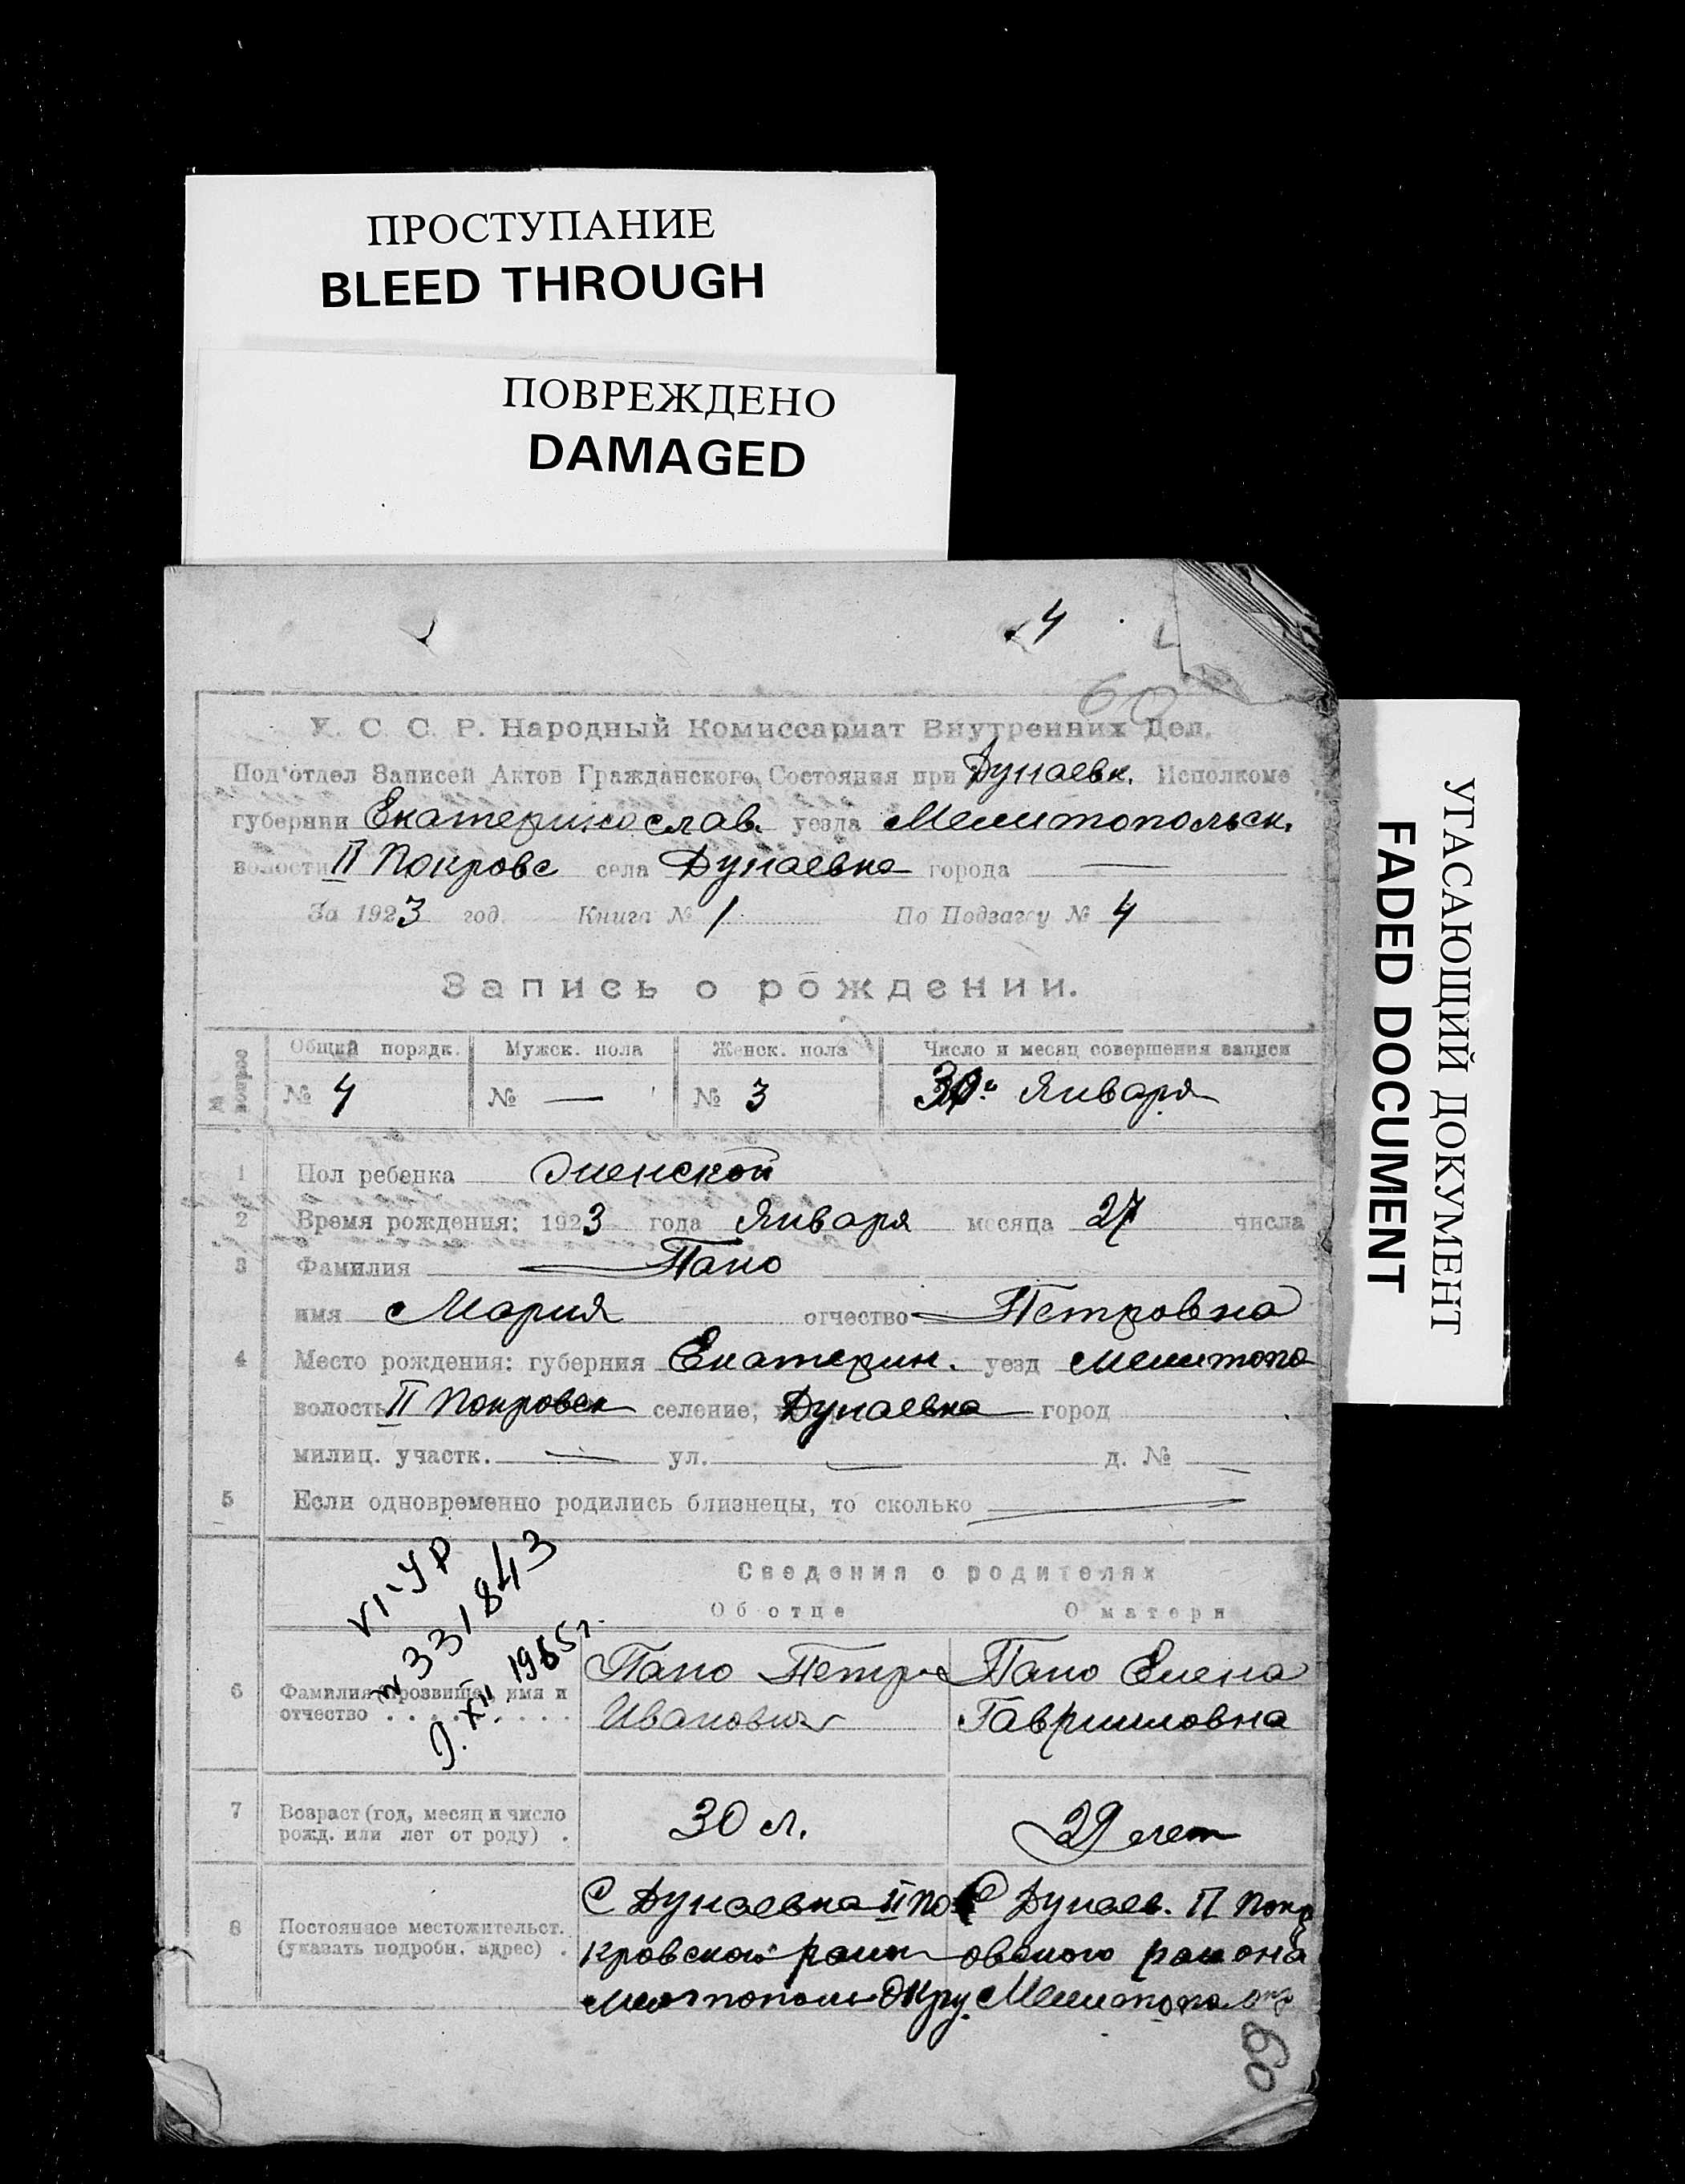 ПРОСТУПАНИЕ
BLEED THROUGH
ПОВРЕЖДЕНО
DAMAGED
УГАСАЮЩИЙ ДОКУМЕНТ
FADED DOCUMENT
4
60
У. С. С. Р. Народный Комиссариат Внутренних Дел.
Под'отдел Записей Актов Гражданского Состояния при Дунаевк. Исполкоме
губернии Екатеринослав. уезда Мелитопольск.
волости II Покровс села Дунаевка города —
За 1923 год. Книга № 1 По Подзагсу № 4
Запись о рождении.
№ вопроса Общий порядк. Мужск. пола Женск. пола Число и месяц совершения записи
№ 4 № — № 3 30. Января
1 Пол ребенка Женской
2 Время рождения: 1923 года Января месяца 27 числа
3 Фамилия Пано
имя Мария отчество Петровна
4 Место рождения: губерния Екатерин. уезд Мелитопо
волость II Покровск селение, Дунаевка город
милиц. участк. — ул. — д. № —
5 Если одновременно родились близнецы, то сколько —
VI-УР
№ 331843
9.XII 1965г.
Сведения о родителях
Об отце О матери
6 Фамилия (прозвище), имя и отчество
Пано Петр
Иванович
Пано Елена
Гавриловна
7 Возраст (год, месяц и число
рожд. или лет от роду) . 30 л. 29 лет
8 Постоянное местожительст.
(указать подробн. адрес) .
С Дунаевка II По
кровской
С Дунаев. II Покр
овского района
60